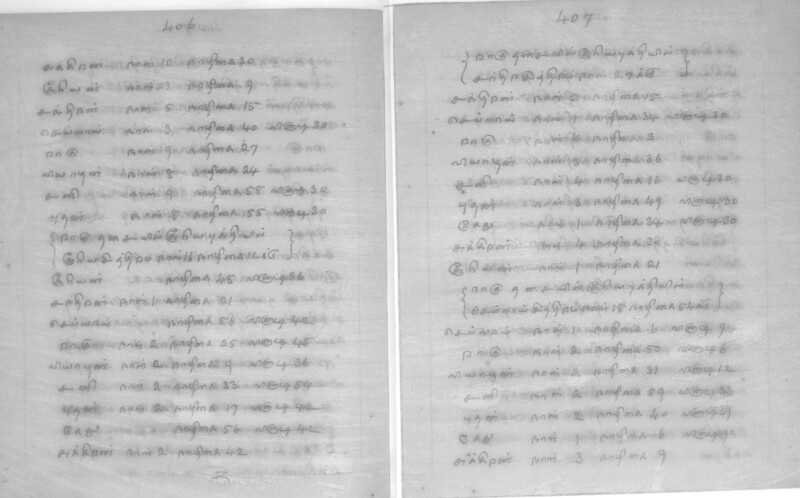 406
சுக்கிரன் நாள் 10 நாழிகை 30
சூரியன் நாள் 3 நாழிகை 9
சந்திரன் நாள் 5 நாழிகை 15
செவ்வாய் நாள் 3 நாழிகை 40 விநாடி 30
ராகு நாள் 9 நாழிகை 27
வியாழன் நாள் 8 நாழிகை 24
சனி நாள் 9 நாழிகை 58 விநாடி 30
புதன் நாள் 8 நாழிகை 55 விநாடி 30
ராகு தசையில் சூரிய புத்தியில்
சூரிய நாள் 16 நாழிகை 12
சூரியன் நாழிகை 45 விநாடி 36
சந்திரன் நாள் 1 நாழிகை 21
செவ்வாய் நாழிகை 56 விநாடி 42
ராகு நாள் 2 நாழிகை 25 விநாடி 45
வியாழன் நாள் 2 நாழிகை 9 விநாடி 36
சனி நாள் 2 நாழிகை 33 விநாடி 54
புதன் நாள் 2 நாழிகை 17 விநாடி 42
கேது நாழிகை 56 விநாடி 42
சுக்கிரன் நாள் 2 நாழிகை 42
407
ராகு தசையில் சூரிய புத்தியில்
சந்திர நாள் 27
சந்திரன் நாள் 2 நாழிகை 15
செவ்வாய் நாள் 1 நாழிகை 34 விநாடி 30
ராகு நாள் 4 நாழிகை 3
வியாழன் நாள் 3 நாழிகை 36
சனி நாள் 4 நாழிகை 16 விநாடி 30
புதன் நாள் 3 நாழிகை 49 விநாடி 30
கேது நாள் 1 நாழிகை 34 விநாடி 30
சுக்கிரன் நாள் 4 நாழிகை 30
சூரியன் நாள் 1 நாழிகை 21
ராகு தசையில் சூரிய புத்தியில்
செவ்வாய் நாள் 18 நாழிகை 54
செவ்வாய் நாள் 1 நாழிகை 6 விநாடி 9
ராகு நாள் 2 நாழிகை 50 விநாடி 6
வியாழன் நாள் 2 நாழிகை 31 விநாடி 12
சனி நாள் 2 நாழிகை 59 விநாடி 33
புதன் நாள் 2 நாழிகை 40 விநாடி 39
கேது நாள் 1 நாழிகை 6 விநாடி 9
சுக்கிரன் நாள் 3 நாழிகை 9